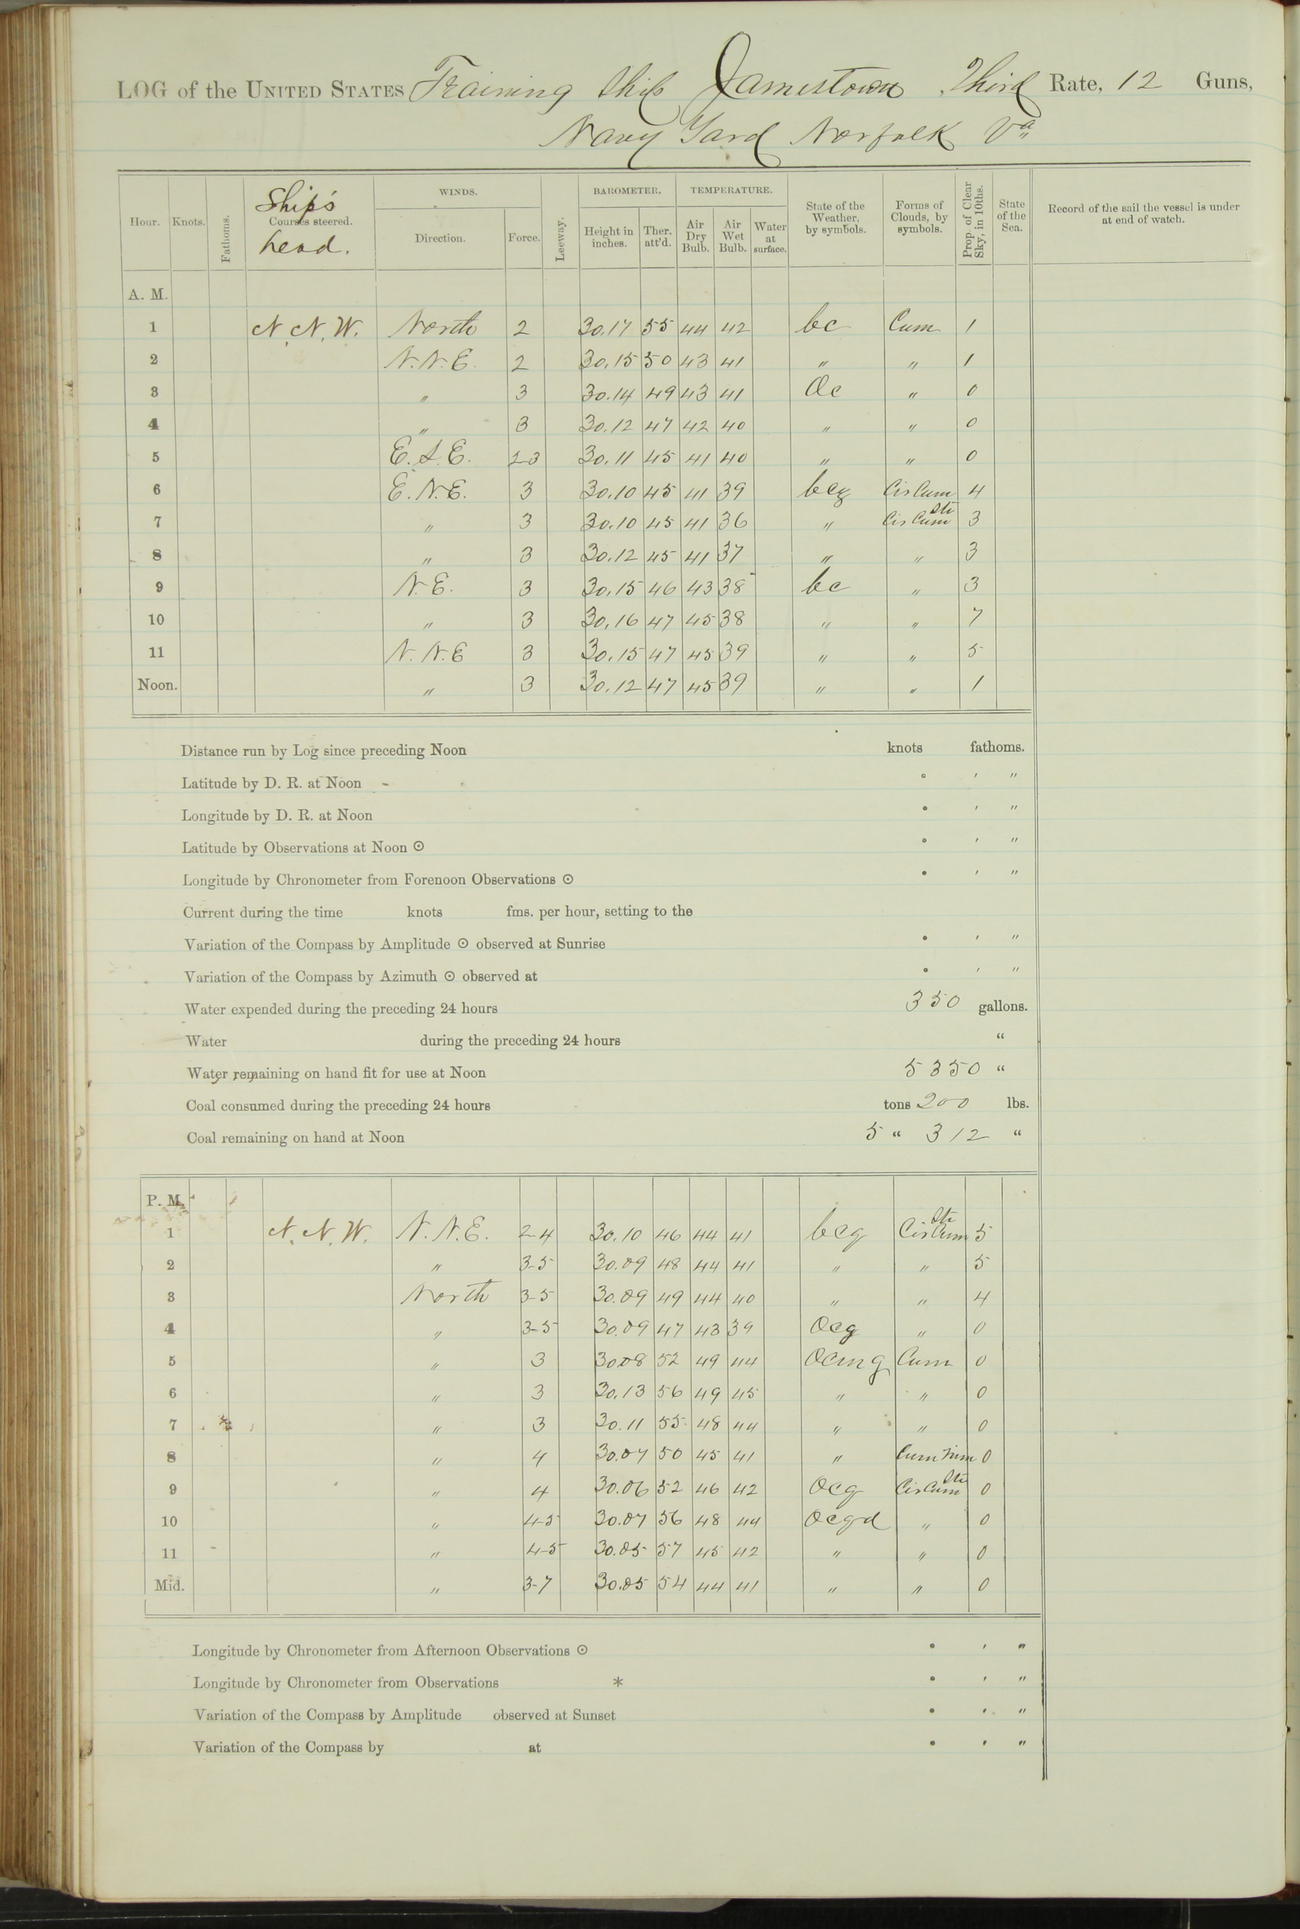 LOG of the UNITED STATES Training Ship Jamestown, Third Rate, 12 Guns,
Navy Yard Norfolk Va
Hour. Knots. Fathoms. Ship's Courses steered. head. WINDS. Direction. Force. Leeway. BAROMETER. Height in inches. Ther. att'd. TEMPERATURE. Air Dry Bulb. Air Wet Bulb. Water at surface. State of the Weather, by symbols. Forms of Clouds, by symbols. Prop. of Clear Sky, in 10ths. State of the Sea. Record of the sail the vessel is under at end of watch.
A. M.
1 N.N.W. North 2 30.17 55 44 42 bc Cum 1
2 N.N.E. 2 30.15 50 43 41 " " 1
3 " 3 30.14 49 43 41 Oc " 0
4 " 3 30.12 47 42 40 " " 0
5 E.S.E. 2-3 30.11 45 41 40 " " 0
6 E.N.E. 3 30.10 45 41 39 bcg CisCum 4
7 " 3 30.10 45 41 36 " CisCum Str 3
8 " 3 30.12 45 41 37 " " 3
9 N.E. 3 30.15 46 43 38 bc " 3
10 " 3 30.16 47 45 38 " " 7
11 N.N.E 3 30.15 47 45 39 " " 5
Noon. " 3 30.12 47 45 39 " " 1
Distance run by Log since preceding Noon knots fathoms.
Latitude by D. R. at Noon ° ' "
Longitude by D. R. at Noon ° ' "
Latitude by Observations at Noon ☉ ° ' "
Longitude by Chronometer from Forenoon Observations ☉ ° ' "
Current during the time knots fms. per hour, setting to the
Variation of the Compass by Amplitude ☉ observed at Sunrise ° ' "
Variation of the Compass by Azimuth ☉ observed at ° ' "
Water expended during the preceding 24 hours 350 gallons.
Water during the preceding 24 hours "
Water remaining on hand fit for use at Noon 5350 "
Coal consumed during the preceding 24 hours tons 200 lbs.
Coal remaining on hand at Noon 5 " 312 "
P. M.
1 N.N.W. N.N.E. 2-4 30.10 46 44 41 bcg CisCum Str 5
2 " 3-5 30.09 48 44 41 " " 5
3 North 3-5 30.09 49 44 40 " " 4
4 " 3-5 30.09 47 43 39 Ocg " 0
5 " 3 30.08 52 49 44 Ocmg Cum 0
6 " 3 30.13 56 49 45 " " 0
7 " 3 30.11 55 48 44 " " 0
8 " 4 30.07 50 45 41 " Cum Nim 0
9 " 4 30.06 52 46 42 Ocg CisCum Str 0
10 " 4-5 30.07 56 48 44 Ocgd " 0
11 " 4-5 30.05 57 45 42 " " 0
Mid. " 3-7 30.05 54 44 41 " " 0
Longitude by Chronometer from Afternoon Observations ☉ ° ' "
Longitude by Chronometer from Observations * ° ' "
Variation of the Compass by Amplitude observed at Sunset ° ' "
Variation of the Compass by at ° ' "